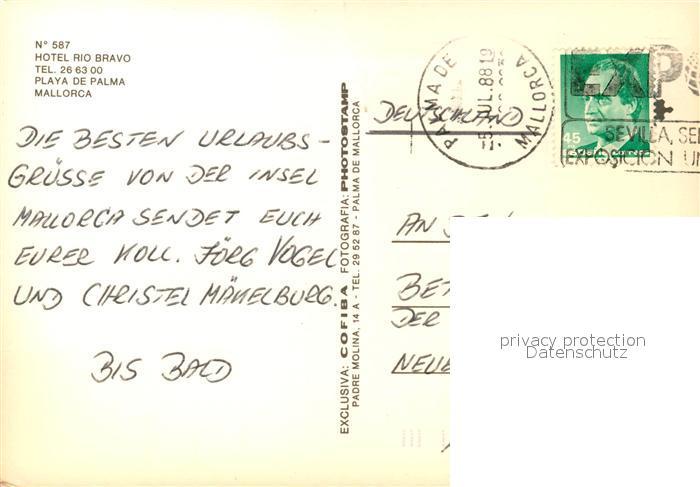 Nº 587
HOTEL RIO BRAVO
TEL. 26 63 00
PLAYA DE PALMA
MALLORCA
DIE BESTEN URLAUBS-
GRÜSSE VON DER INSEL
MALLORCA SENDET EUCH
EURER KOLL. JÖRG VOGEL
UND CHRISTEL MÄKELBURG.
BIS BALD
EXCLUSIVA: COFIBA FOTOGRAFIA: PHOTOSTAMP
PADRE MOLINA, 14 A - TEL. 29 52 87 - PALMA DE MALLORCA
PALMA DE MALLORCA
JUL. 88
45
EXPO
SEVILLA, SE
EXPOSICION UN
DEUTSCHLAND
AN
BET
DER
NEUE
privacy protection
Datenschutz